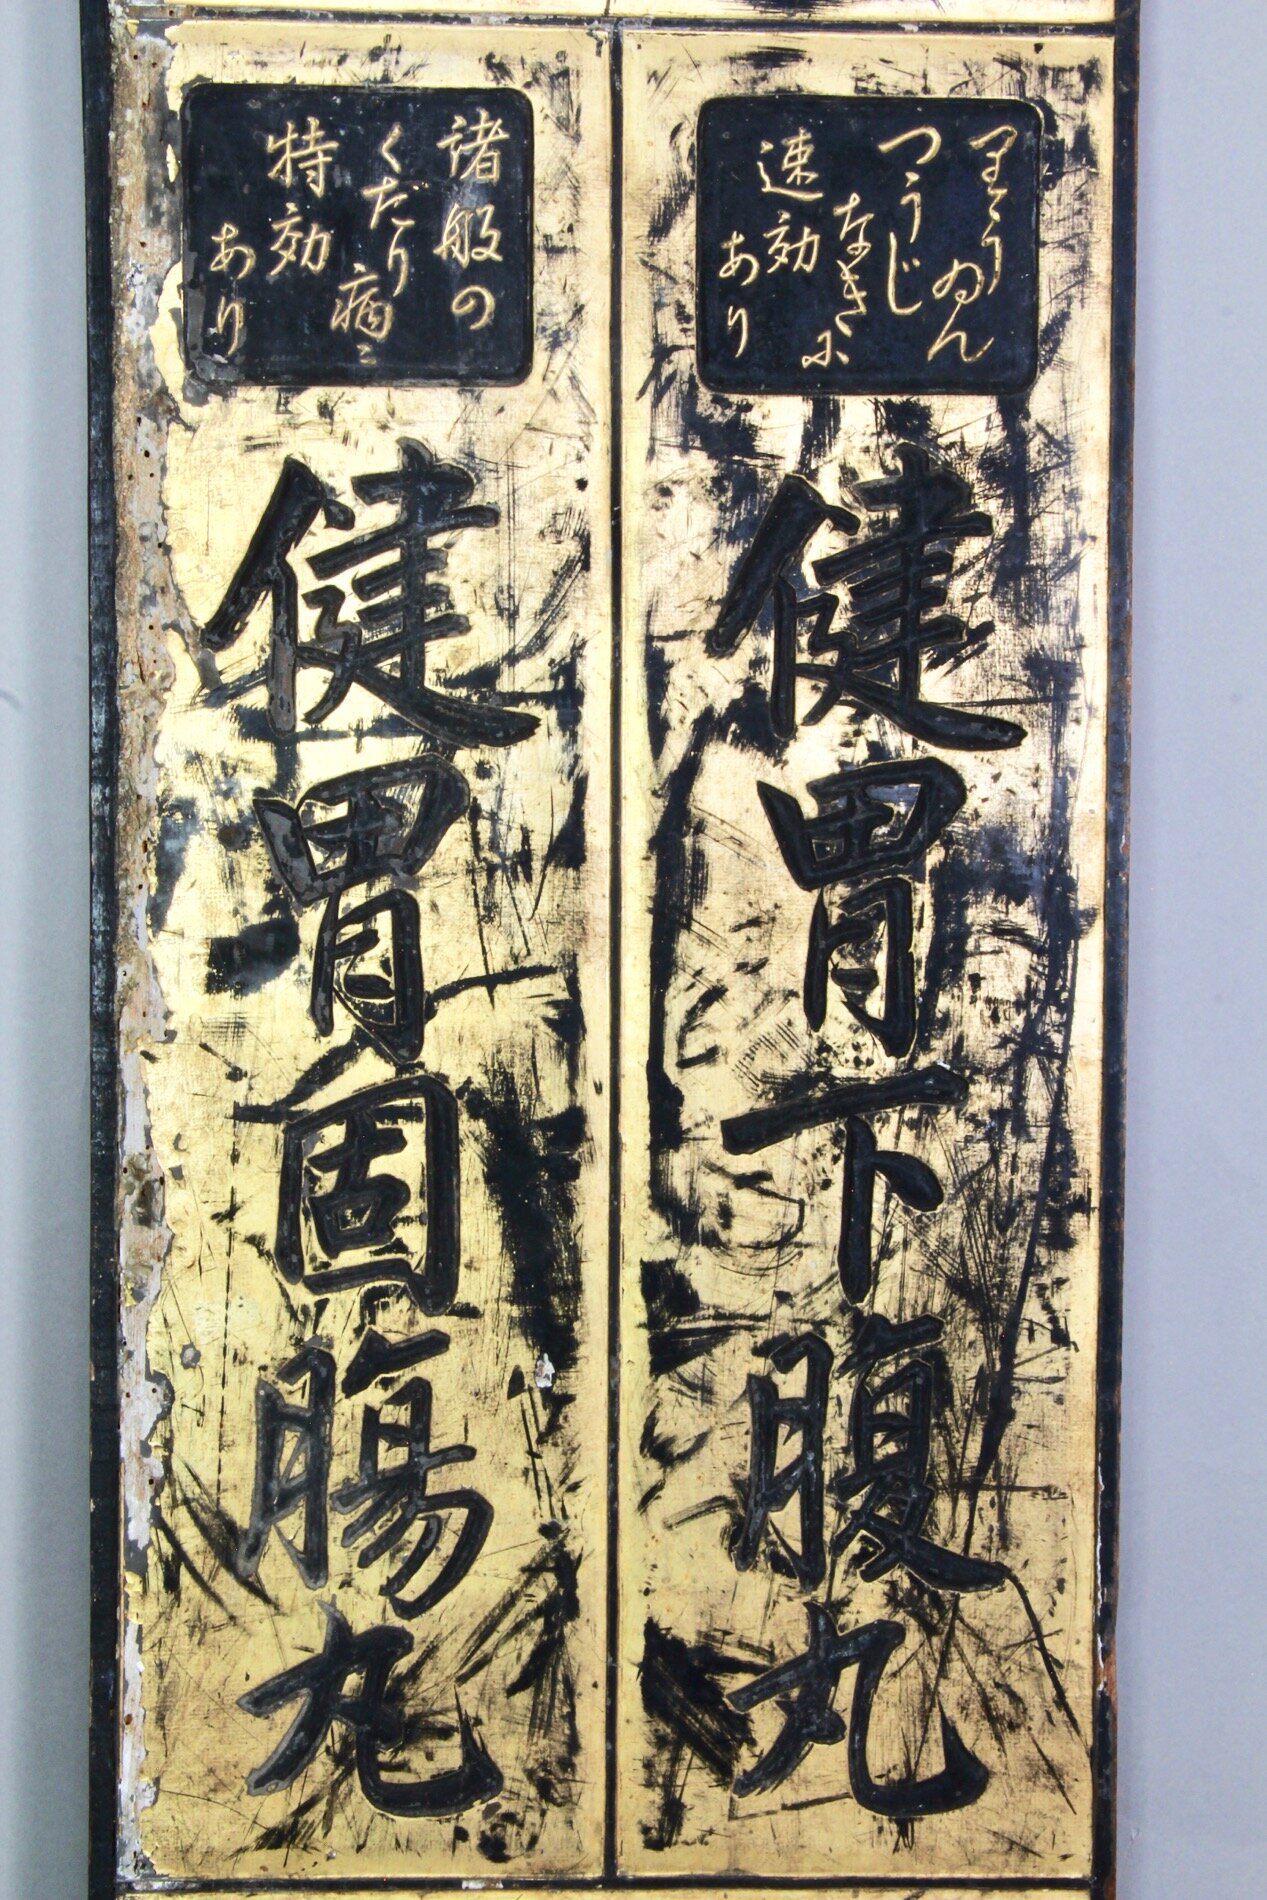 りうゐん
つうじ
なきに
速効
あり
健胃下腹丸
諸般の
くだり病ニ
特効
あり
健胃固腸丸